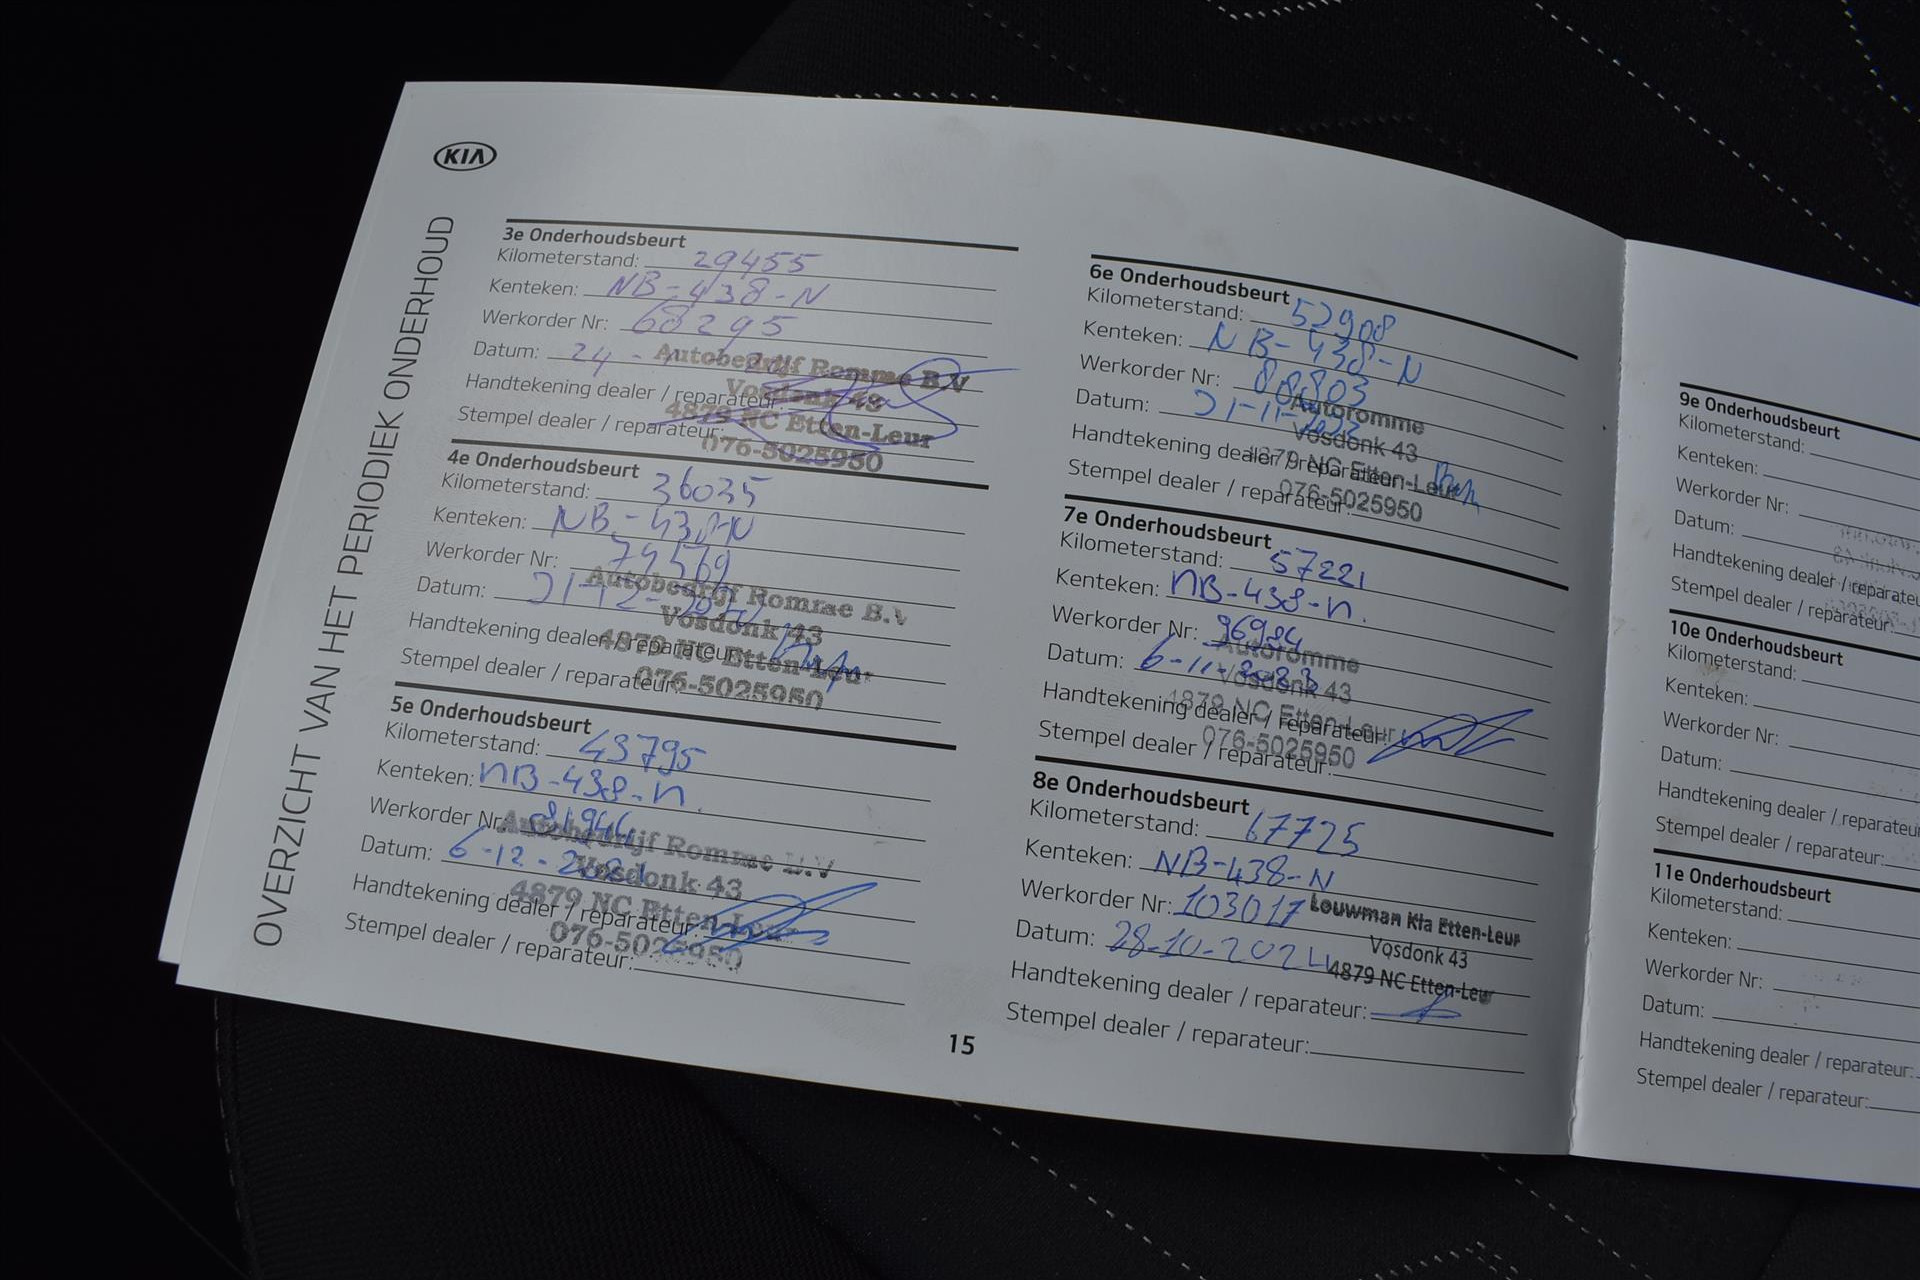 KIA
OVERZICHT VAN HET PERIODIEK ONDERHOUD
3e Onderhoudsbeurt
Kilometerstand: 29455
Kenteken: NB-438-N
Werkorder Nr: 68295
Datum: 24 -
Handtekening dealer / reparateur:
Stempel dealer / reparateur:
Autobedrijf Romme B.V
Vosdonk 43
4879 NC Etten-Leur
076-5025950
4e Onderhoudsbeurt
Kilometerstand: 36035
Kenteken: NB-438-N
Werkorder Nr: 74569
Datum:
Handtekening dealer / reparateur:
Stempel dealer / reparateur:
Autobedrijf Romme B.V
Vosdonk 43
4879 NC Etten-Leur
076-5025950
5e Onderhoudsbeurt
Kilometerstand: 43795
Kenteken: NB-438-N.
Werkorder Nr: 81944
Datum: 6-12-2021
Handtekening dealer / reparateur:
Stempel dealer / reparateur:
Autobedrijf Romme B.V
Vosdonk 43
4879 NC Etten-Leur
076-5025950
6e Onderhoudsbeurt
Kilometerstand: 52908
Kenteken: NB-438-N
Werkorder Nr: 88803
Datum:
Handtekening dealer / reparateur:
Stempel dealer / reparateur:
Autoromme
Vosdonk 43
4879 NC Etten-Leur
076-5025950
7e Onderhoudsbeurt
Kilometerstand: 57221
Kenteken: NB-438-N.
Werkorder Nr: 96984
Datum: 6-11-2023
Handtekening dealer / reparateur:
Stempel dealer / reparateur:
Autoromme
Vosdonk 43
4879 NC Etten-Leur
076-5025950
8e Onderhoudsbeurt
Kilometerstand: 67725
Kenteken: NB-438-N
Werkorder Nr: 103017
Datum: 28-10-2024
Handtekening dealer / reparateur:
Stempel dealer / reparateur:
Louwman Kia Etten-Leur
Vosdonk 43
4879 NC Etten-Leur
15
9e Onderhoudsbeurt
Kilometerstand:
Kenteken:
Werkorder Nr:
Datum:
Handtekening dealer / reparateu
Stempel dealer / reparateur:
10e Onderhoudsbeurt
Kilometerstand:
Kenteken:
Werkorder Nr:
Datum:
Handtekening dealer / reparateu
Stempel dealer / reparateur:
11e Onderhoudsbeurt
Kilometerstand:
Kenteken:
Werkorder Nr:
Datum:
Handtekening dealer / reparateur:
Stempel dealer / reparateur: